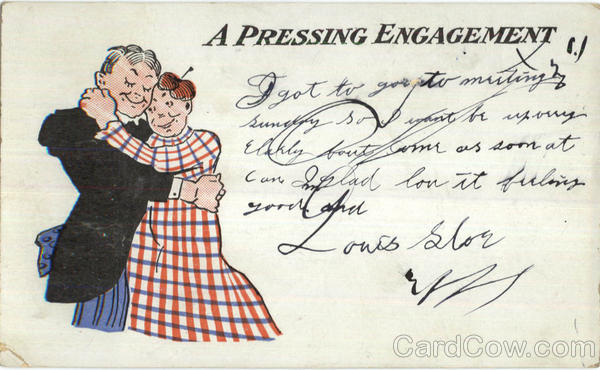 A PRESSING ENGAGEMENT
I got to go to meeting
sunday so I want be up very
Elerly but come as soon at
Can glad you it feeling
good and
Louis
CardCow.com